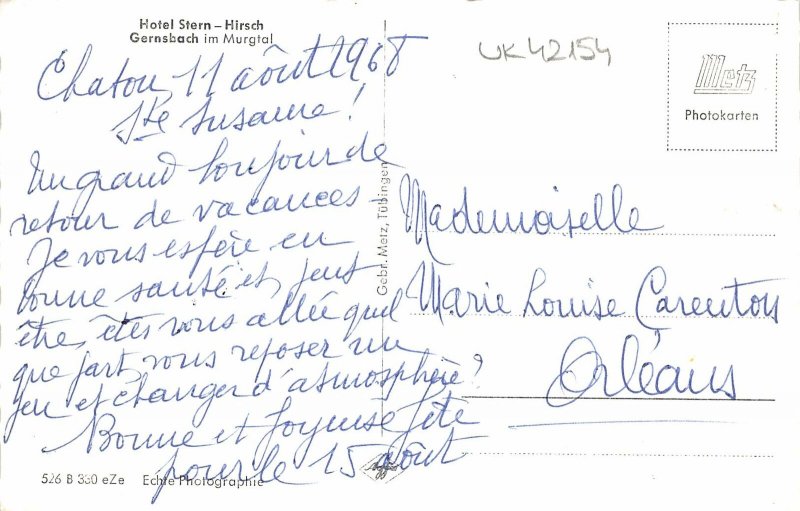 Hotel Stern – Hirsch
Gernsbach im Murgtal
UK42154
Metz
Photokarten
Chatou 11 août 1968
Ste Susanne !
Un grand bonjour de
retour de vacances –
Je vous espère en
bonne santé et peut
être, êtes vous allée quel
que part vous reposer un
peu et changer d'atmosphère ?
Bonne et Joyeuse fête
pour le 15 août
Mademoiselle
Marie Louise Carenton
Orléans
Gebr. Metz, Tübingen
526 B 330 eZe Echte Photographie